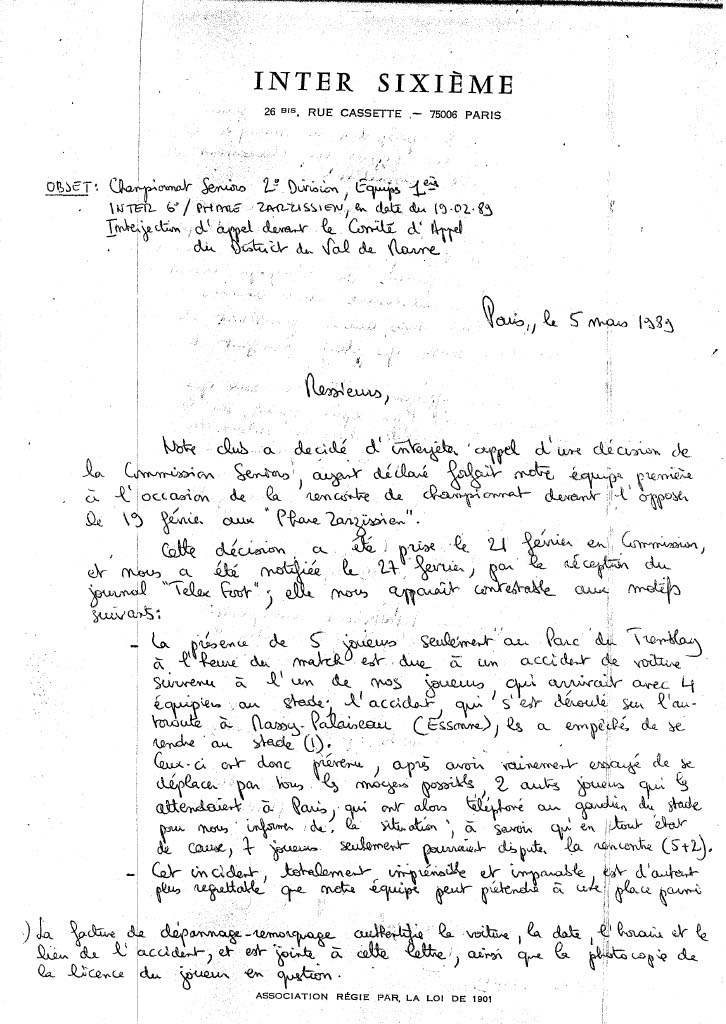 INTER SIXIÈME
26 BIS, RUE CASSETTE — 75006 PARIS
OBJET: Championnat Seniors 2° Division, Equipe 1ère
INTER 6°/PHARE ZARZISSIEN, en date du 19.02.89
Interjection d'appel devant le Comité d'Appel
du District du Val de Marne.
Paris, le 5 mars 1989
Messieurs,
Notre club a décidé d'interjeter appel d'une décision de
la Commission Seniors, ayant déclaré forfait notre équipe première
à l'occasion de la rencontre de championnat devant l'opposer
le 19 février aux "Phare Zarzissien".
Cette décision a été prise le 21 février en Commission,
et nous a été notifiée le 27 février, par la réception du
journal "Telex Foot"; elle nous apparaît contestable aux motifs
suivants:
- La présence de 5 joueurs seulement au Parc du Tremblay
à l'heure du match est due à un accident de voiture
survenu à l'un de nos joueurs, qui arrivait avec 4
équipiers au stade; l'accident, qui s'est déroulé sur l'au-
toroute à Massy-Palaiseau (Essonne), les a empêchés de se
rendre au stade (1).
Ceux-ci ont donc prévenu, après avoir vainement essayé de se
déplacer par tous les moyens possibles, 2 autres joueurs qui les
attendaient à Paris, qui ont alors téléphoné au gardien du stade
pour nous informer de la situation, à savoir qu'en tout état
de cause, 7 joueurs seulement pourraient disputer la rencontre (5+2).
- Cet incident, totalement imprévisible et imparable, est d'autant
plus regrettable que notre équipe peut prétendre à une place parmi
) La facture de dépannage-remorquage authentifie la voiture, la date, l'horaire et le
lieu de l'accident, et est jointe à cette lettre, ainsi que la photocopie de
la licence du joueur en question.
ASSOCIATION RÉGIE PAR LA LOI DE 1901